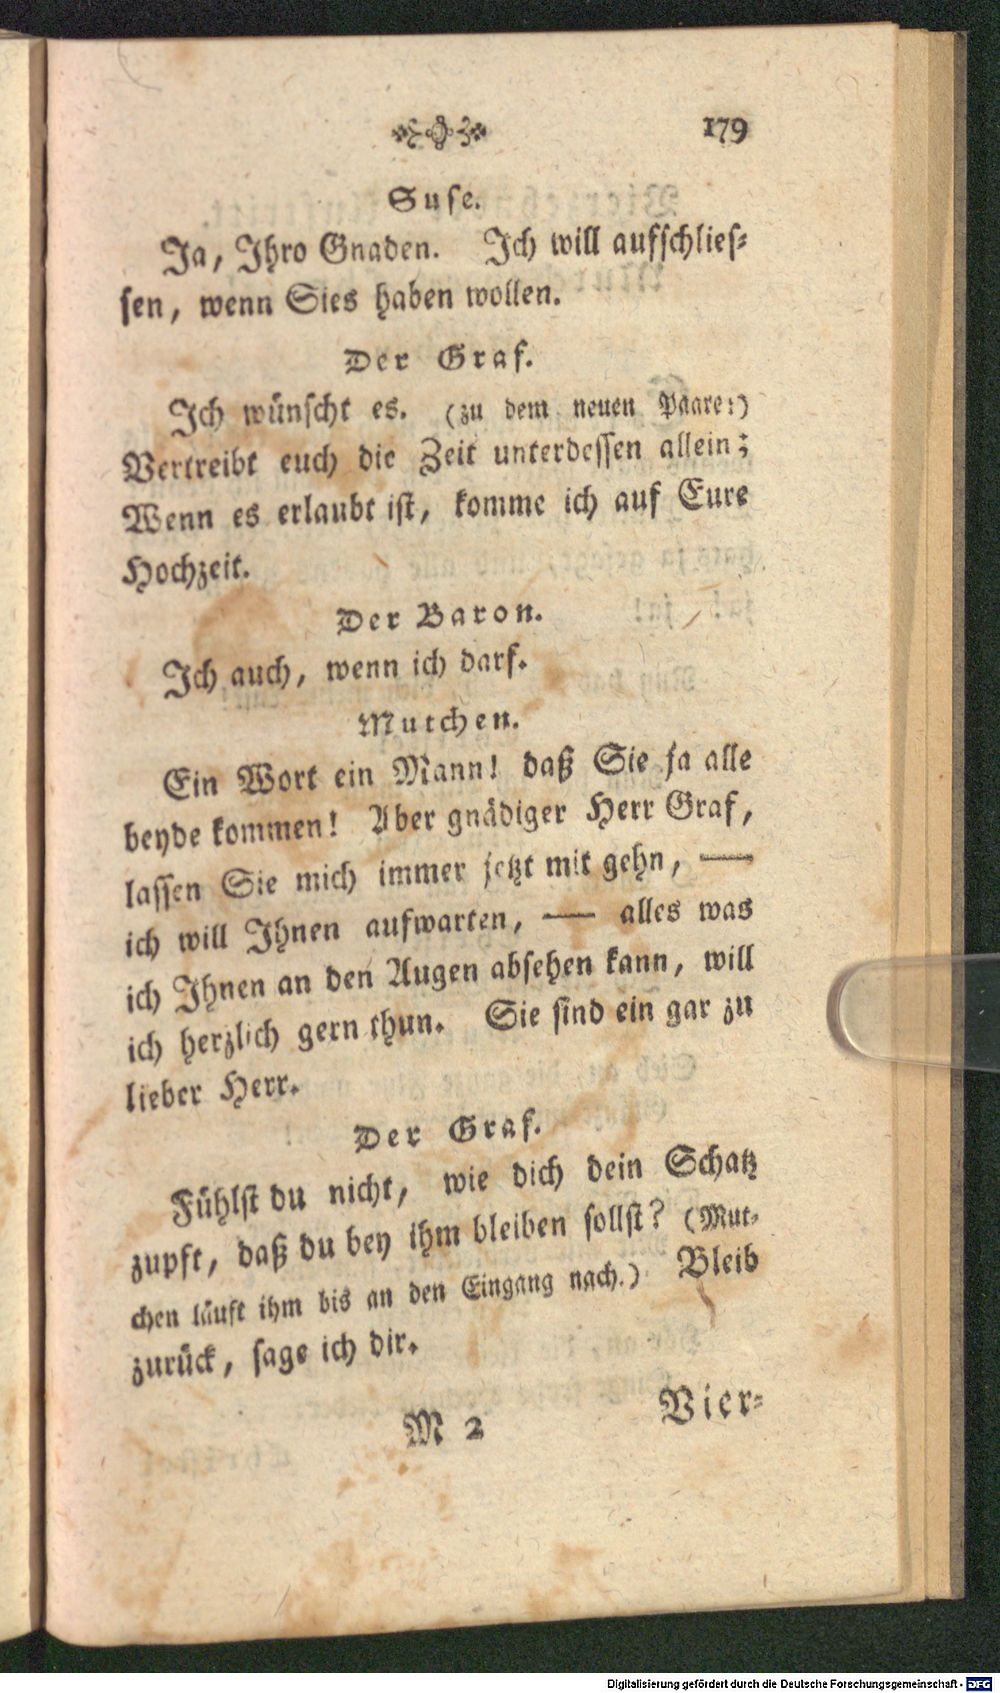 179
Suse.
Ja, Ihro Gnaden. Ich will aufschlies-
sen, wenn Sies haben wollen.
Der Graf.
Ich wünscht es. (zu dem neuen Paare:)
Vertreibt euch die Zeit unterdessen allein;
Wenn es erlaubt ist, komme ich auf Eure
Hochzeit.
Der Baron.
Ich auch, wenn ich darf.
Mutchen.
Ein Wort ein Mann! daß Sie ja alle
beyde kommen! Aber gnädiger Herr Graf,
lassen Sie mich immer jetzt mit gehn, —
ich will Ihnen aufwarten, — alles was
ich Ihnen an den Augen absehen kann, will
ich herzlich gern thun. Sie sind ein gar zu
lieber Herr.
Der Graf.
Fühlst du nicht, wie dich dein Schatz
zupft, daß du bey ihm bleiben sollst? (Mut-
chen läuft ihm bis an den Eingang nach.) Bleib
zurück, sage ich dir.
M 2 Vier-
Digitalisierung gefördert durch die Deutsche Forschungsgemeinschaft - DFG